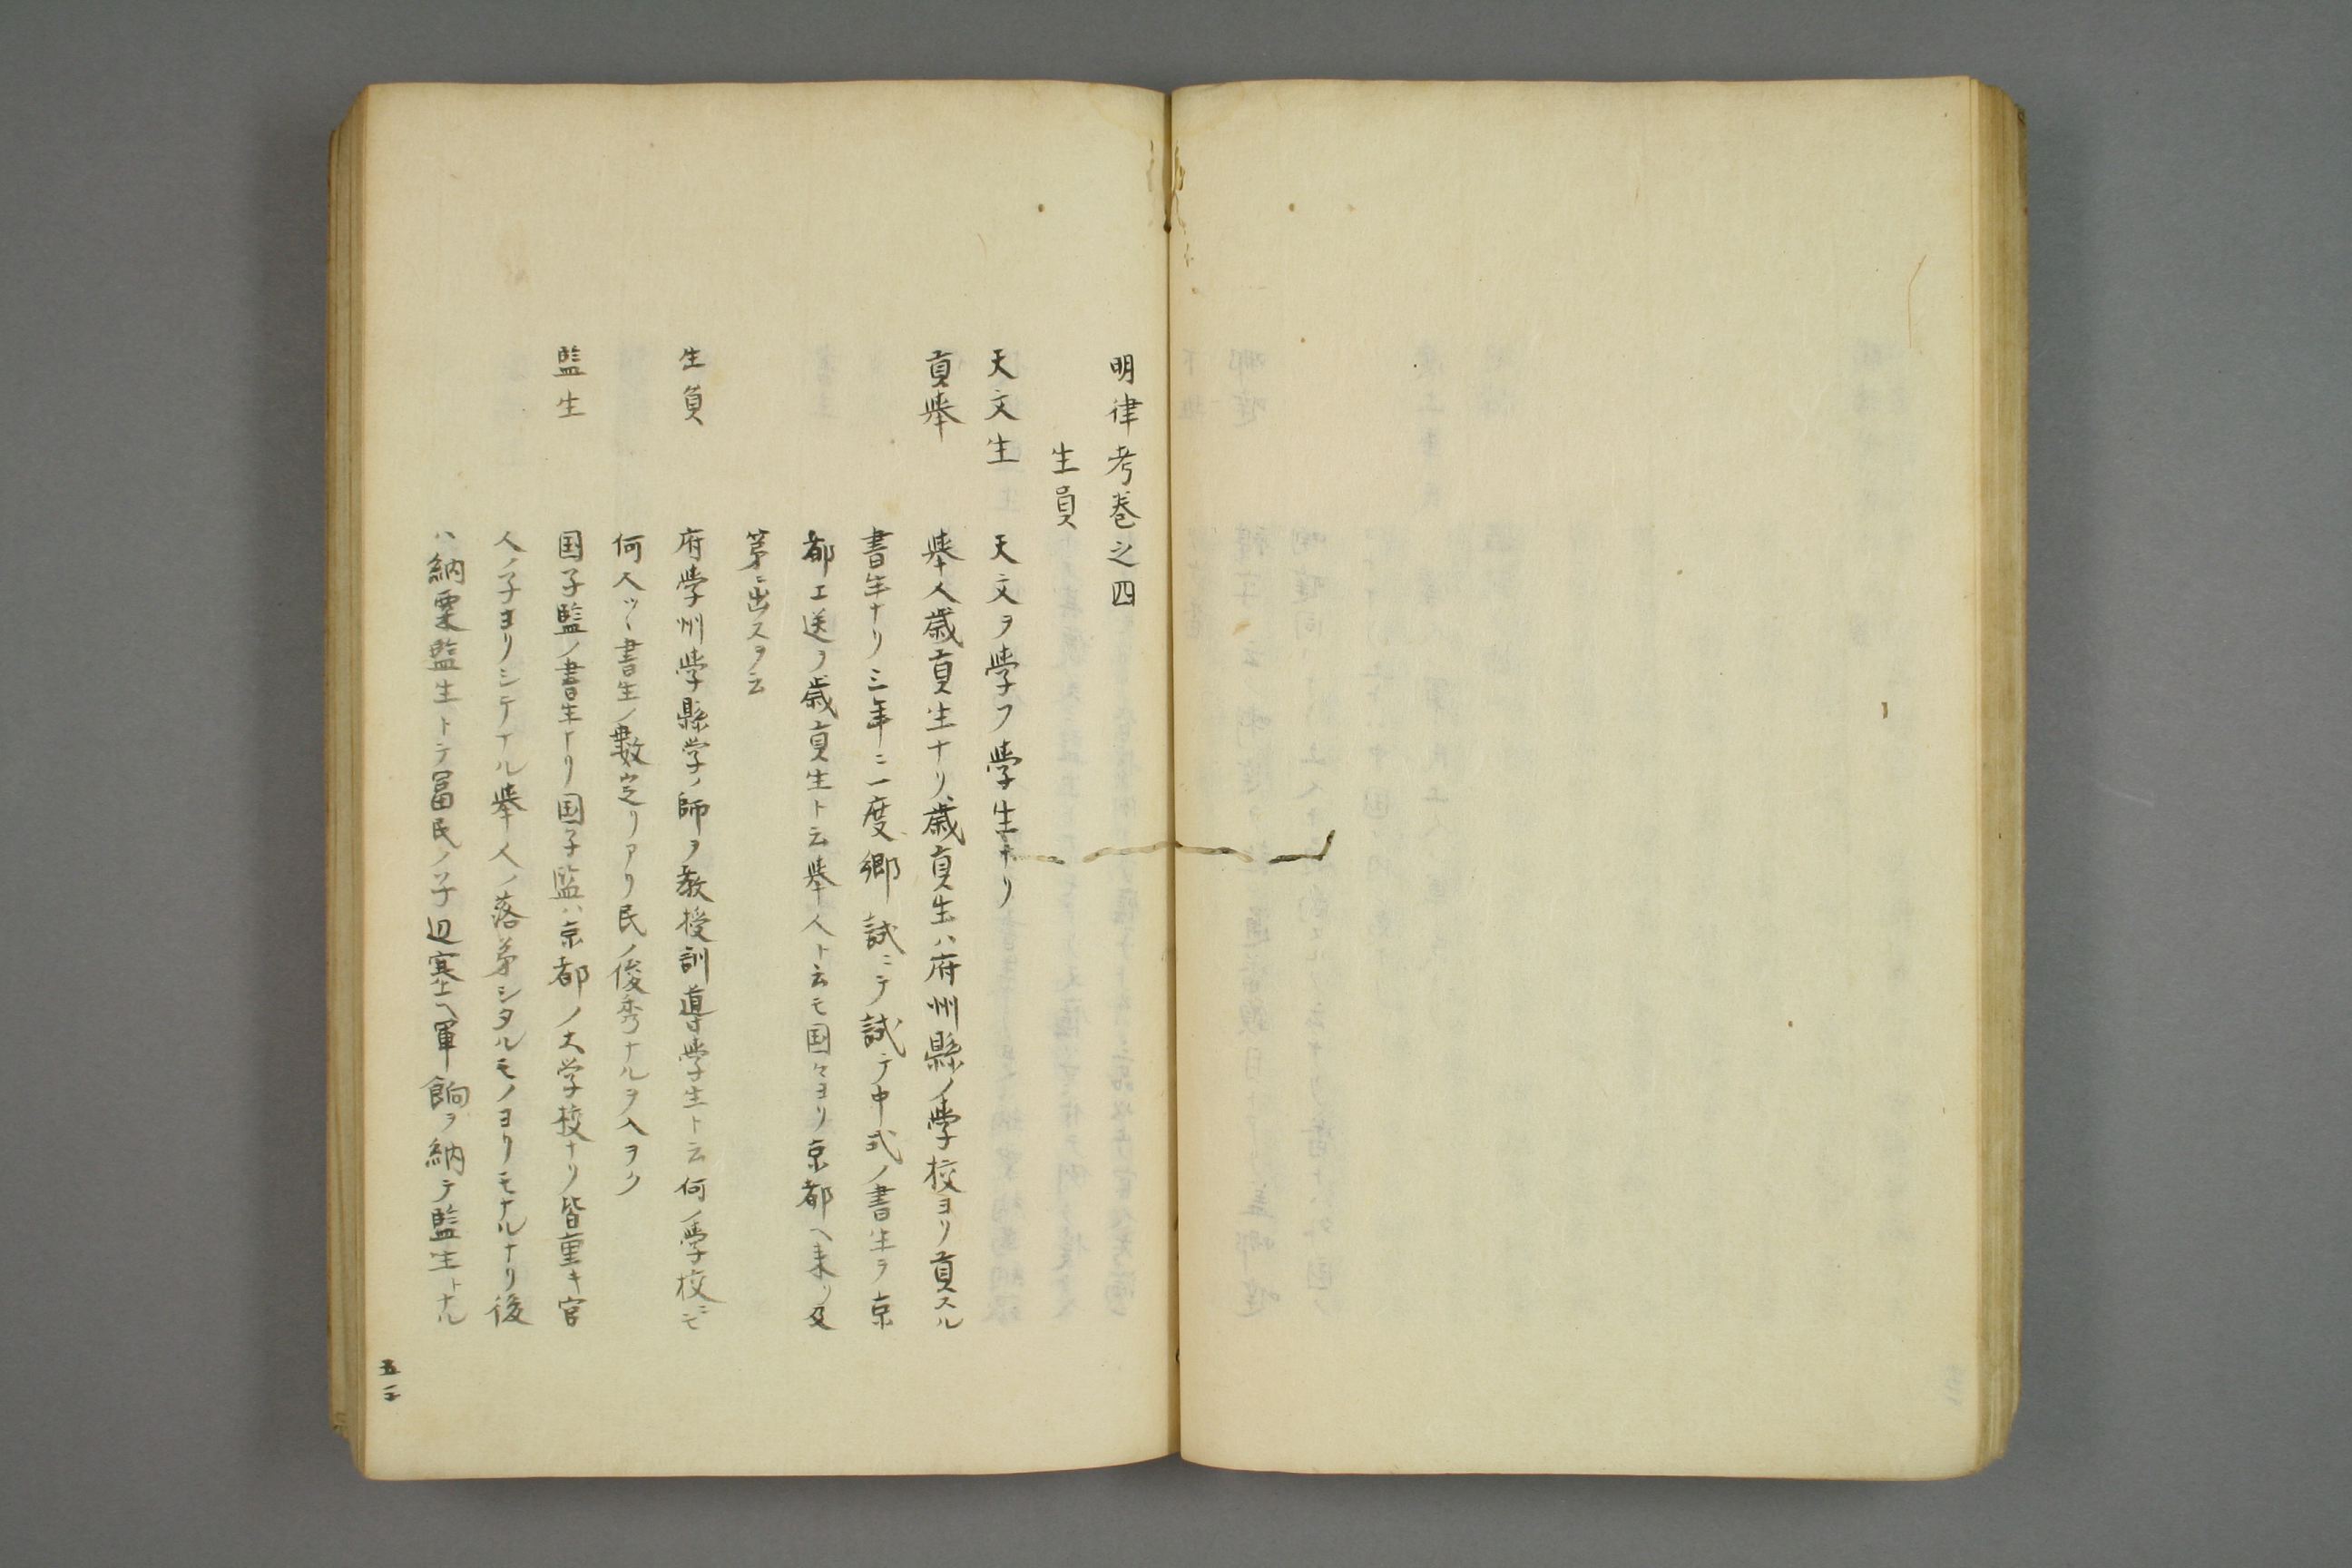 明律考巻之四
生員
天文生 天文ヲ學フ學生ナリ
貢擧 擧人歳貢生ナリ歳貢生ハ府州縣ノ學校ヨリ貢スル
書生ナリ三年ニ一度郷試ニテ試テ中式ノ書生ヲ京
都エ送ヲ歳貢生ト云擧人ト云モ国々ヨリ京都ヘ来リ及
第ニ出スヲ云
生員 府學州學縣学ノ師ヲ教授訓導學生ト云何ノ學校ニモ
何人ツヽ書生ノ數定リアリ民ノ俊秀ナルヲ入ヲク
監生 国子監ノ書生ナリ国子監ハ京都ノ大学校ナリ皆重キ官
人ノ子ヨリシテナル擧人ノ落第シタルモノヨリモナルナリ後
ハ納粟監生トテ冨民ノ子辺塞ヘ軍餉ヲ納テ監生トナル
五十三